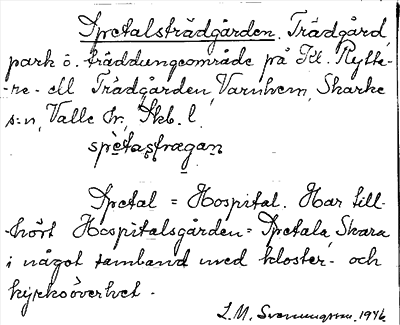 Spetalsträdgården. Trädgård,
park o. träddungeområde på Kl. Rytta-
-re- ell Trädgården, Varnhem, Skarke
s:n, Valle hr, Skb. l.
spètasfrægan
Spetal = Hospital. Har till-
-hört Hospitalsgården = Spetala, Skara
i något samband med kloster- och
kyrkoöverhet.
L. M. Svenungsson. 1946.